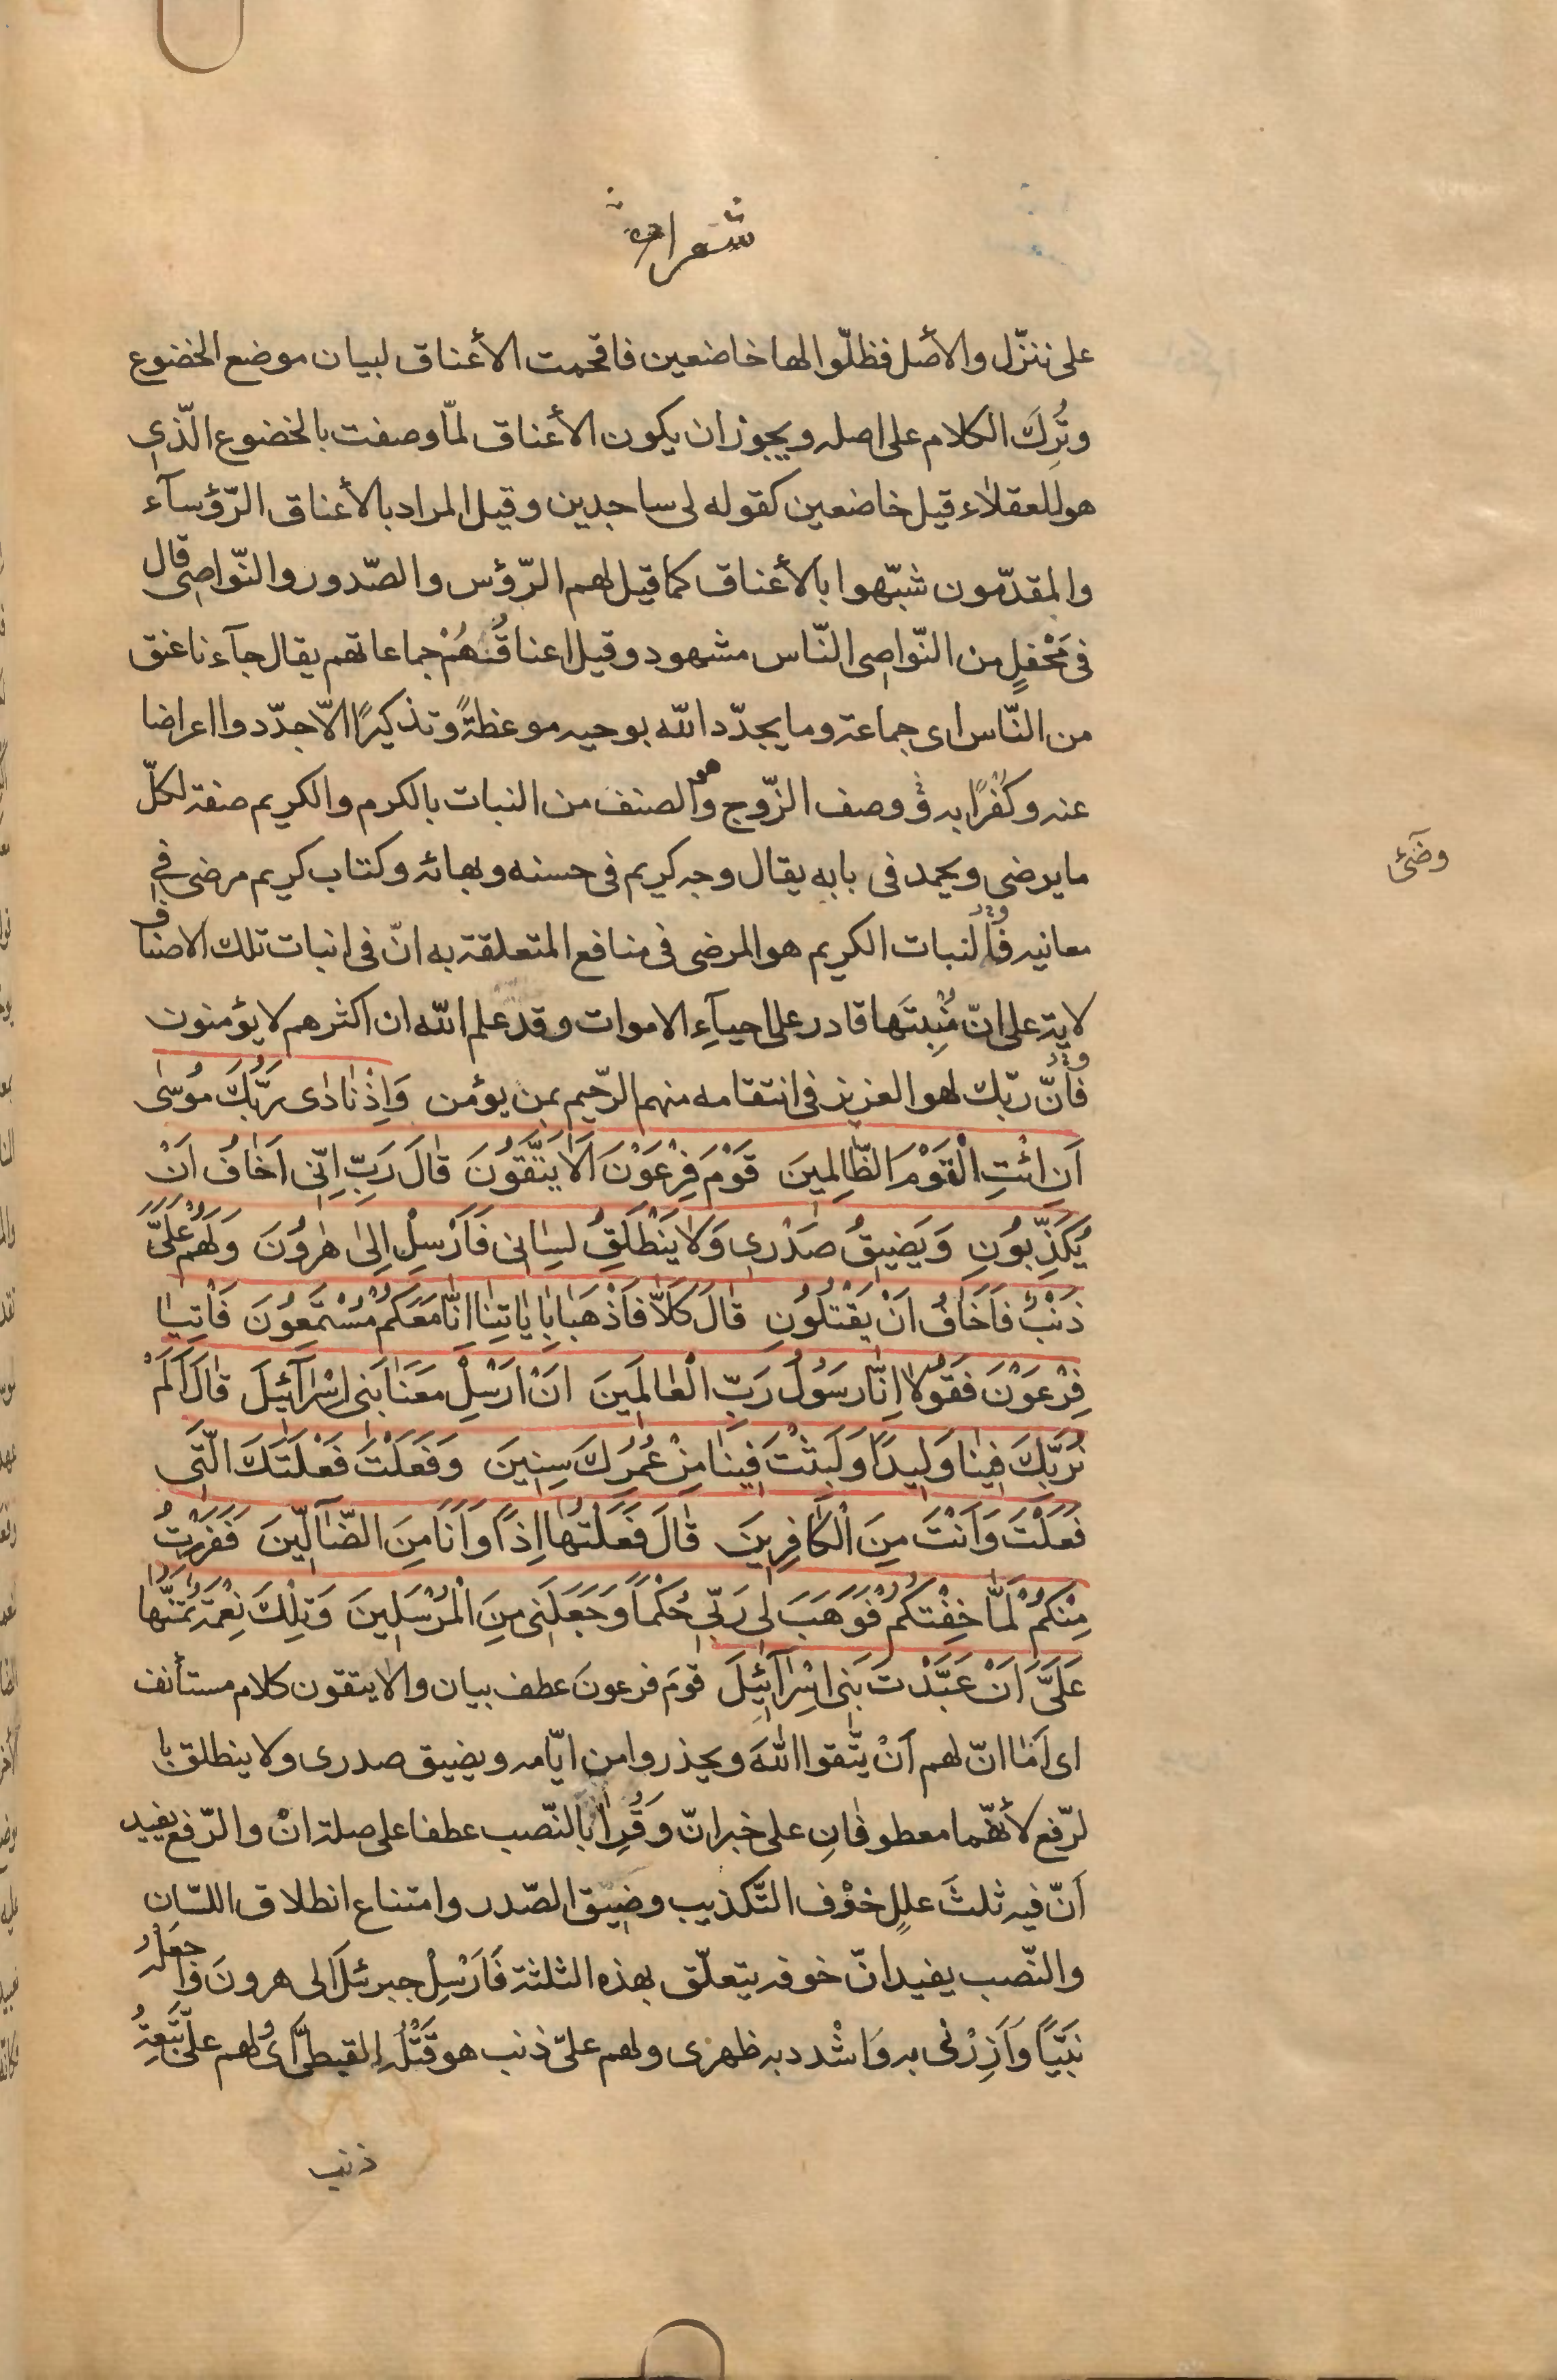 شعراء
على ننزّل والأصل فظلّوا لها خاضعين فاقحمت الأعناق لبيان موضع الخضوع
وتُرِكَ الكلام على اصله ويجوز ان يكون الأعناق لمّا وصفت بالخضوع الّذي
هو للعقلاء قيل خاضعين كقوله لى ساجدين وقيل المراد بالأعناق الرّؤسآء
والمقدّمون شبّهوا بالأعناق كما قيل لهم الرّؤس والصّدور والنّواصى قال
فى مَحْفلٍ من النّواصى النّاس مشهود وقيل اعناقُهُمْ جماعاتهم يقال جآءنا عنق
من النّاس اى جماعة وما يجدّد الله بوحيه موعظةً وتذكيرًا الّا جدّدوا اعراضا
عنه وكُفرًا به ووصف الزّوج وهو الصنف من النبات بالكرم والكريم صفة لكلّ
ما يرضى ويحمد فى بابه يقال وجه كريم فى حسنه وبهائه وكتاب كريم مرضى فى
وضَئ
معانيه فالنبات الكريم هو المرضى فى منافع المتعلقة به انّ فى انبات تلك الاصناف
لاية على انّ مُنْبِتَها قادر على احيآءِ الاموات وقد علم الله ان اكثرهم لا يؤمنون
فانّ ربّك لهو العزيز فى انتقامه منهم الرّحيم بمن يؤمن وَاِذْ نَادٰى رَبُّكَ مُوسٰى
اَنِ ائْتِ الْقَوْمَ الظّٰالِمينَ قَوْمَ فِرْعَوْنَ اَلٰا يَتَّقُونَ قٰالَ رَبِّ اِنّى اَخٰافُ اَنْ
يُكَذِّبُونِ وَيَضيقُ صَدْري وَلٰا يَنْطَلِقُ لِسٰانى فَاَرْسِلْ اِلىٰ هٰرُونَ وَلَهُمْ عَلَىَّ
ذَنْبٌ فَاَخٰافُ اَنْ يَقْتُلُونِ قٰالَ كَلّٰا فَاذْهَبٰا بِاٰيٰاتِنٰا اِنّٰا مَعَكُمْ مُسْتَمِعُونَ فَاْتِيٰا
فِرْعَوْنَ فَقُولٰا اِنّٰا رَسُولُ رَبِّ الْعٰالَمينَ اَنْ اَرْسِلْ مَعَنٰا بَنى اِسْرٰآئيلَ قٰالَ اَلَمْ
نُرَبِّكَ فينٰا وَليدًا وَلَبِثْتَ فينٰا مِنْ عُمُرِكَ سِنينَ وَفَعَلْتَ فَعْلَتَكَ الَّتى
فَعَلْتَ وَاَنْتَ مِنَ الْكٰافِرينَ قٰالَ فَعَلْتُهٰا اِذًا وَاَنَا مِنَ الضّٰآلّينَ فَفَرَرْتُ
مِنْكُمْ لَمّٰا خِفْتُكُمْ فَوَهَبَ لى رَبّى حُكْمًا وَجَعَلَنى مِنَ الْمُرْسَلينَ وَتِلْكَ نِعْمَةٌ تَمُنُّهٰا
عَلَىَّ اَنْ عَبَّدْتَ بَنى اِسْرٰآئيلَ قومَ فرعونَ عطف بيان والا يتقون كلام مستأنف
اى اَمٰا انّ لهم اَنْ يتّقوا اللهَ ويحذروا من ايّامه ويضيق صدرى ولا ينطلق با
لرّفع لأنّهما معطوفانِ على خبر انّ وَقُرِأَ بالنّصب عطفا على صلة انْ والرّفع يفيد
اَنّ فيه ثلثَ عللٍ خوْف التّكذيب وضيق الصّدر وامتناع انطلاق اللسّان
والنّصب يفيد انّ خوفه يتعلّق بهذه الثلثة فَاَرْسِلْ جبرئلَ الى هرونَ وَاجْعَلْهُ
نَبيًّا وَاَزِرْنى به وَاشْدد به ظهرى ولهم علىّ ذنب هو قَتْلُهُ القبطىَّ اى ولهم علىّ تَبِعَةُ
ذنب